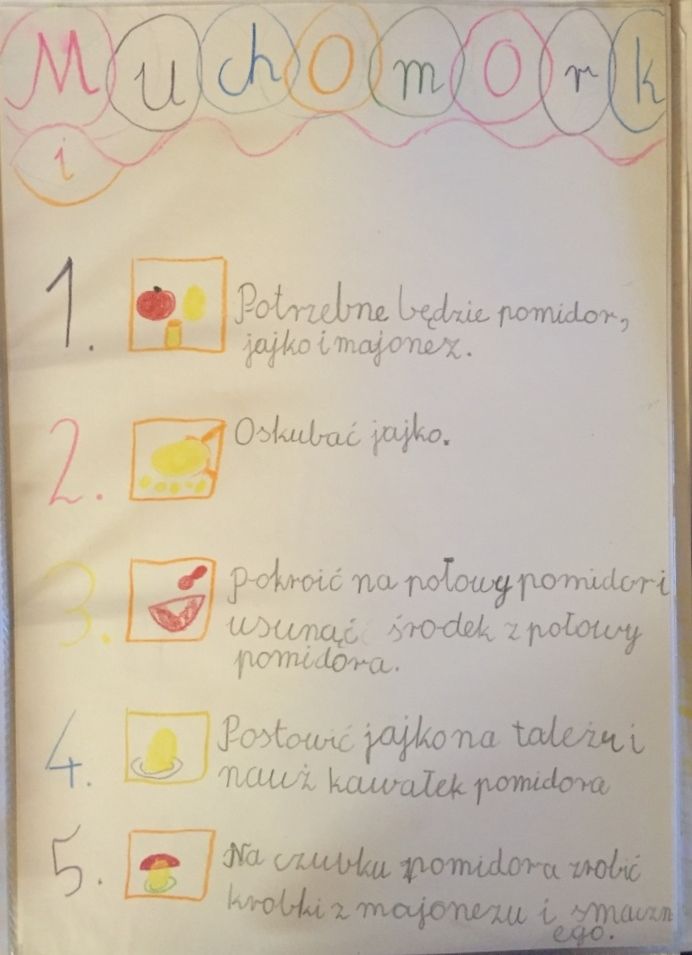 Muchomork
i
1. Potrzebne będzie pomidor,
jajko i majonez.
2. Oskubać jajko.
3. pokroić na połowy pomidor i
usunąć środek z połowy
pomidora.
4. Postowić jajko na taleźu i
nauż kawałek pomidora
5. Na czubku pomidora zrobić
krobki z majonezu i smaczn
ego.